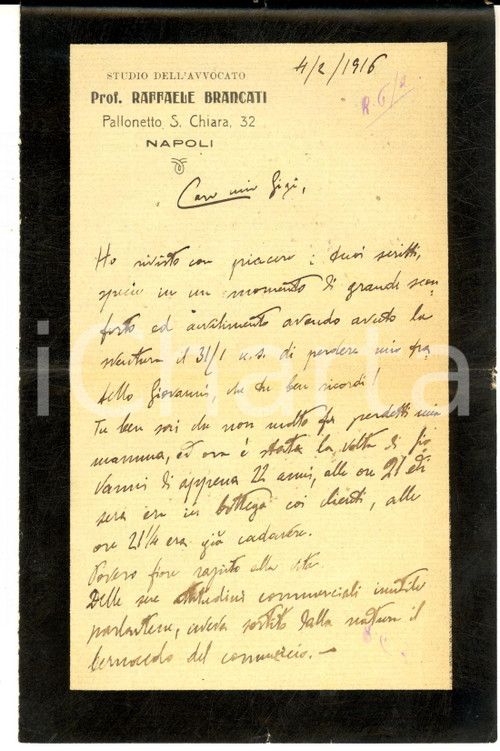 STUDIO DELL'AVVOCATO
Prof. RAFFAELE BRANCATI
Pallonetto S. Chiara, 32
NAPOLI
4/2/1916
R. 6/2
Caro mio Gigi,
Ho rivisto con piacere i tuoi scritti,
specie in un momento di grande scon-
forto ed avvilimento avendo avuto la
sventura il 31/1 u.s. di perdere mio fra-
tello Giovanni, che tu ben ricordi!
Tu ben sai che non molto fa perdetti mia
mamma, ed ora è stata la volta di Gio
vanni di appena 22 anni, alle ore 21 di
sera era in bottega coi clienti, alle
ore 21 1/4 era già cadavere.
Povero fiore rapito alla vita.
Delle sue attitudini commerciali inutile
parlartene, aveva sortito dalla natura il
bernoccolo del commercio. —
iCharta